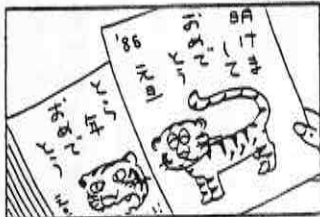 明けま
して
おめで
とう
'86 元旦
とら年
おめで
とう